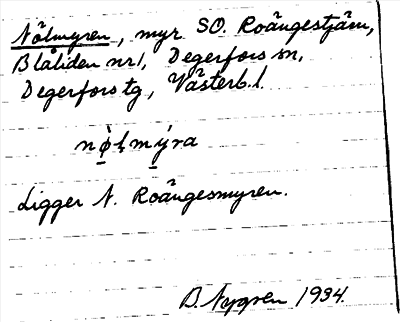 Nölmyren, myr SO. Roängestjärn,
Blåliden nr 1, Degerfors sn,
Degerfors tg, Västerb. l.
nø̀l̥mýra
Ligger N. Roängesmyren.
B. Nygren 1934.